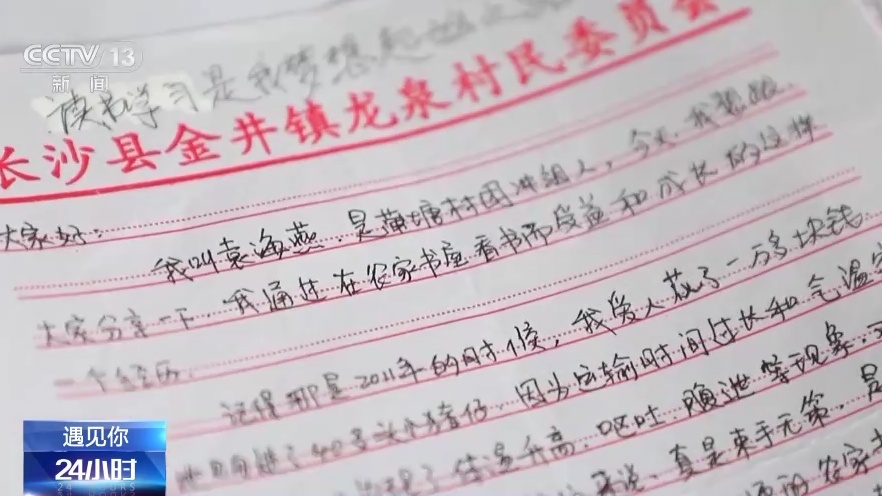 CCTV 13
新闻
读书学习是我梦想起
长沙县金井镇龙泉村民委员会
大家好:
我叫袁海燕,是蒲塘村团冲组人,今天,我想跟
大家分享一下,我通过在农家书屋看书而受益和成长的这样
一个经历。
记得那是2011年的时候,我爱人花了一万多块钱
进了40多头小猪仔,因为运输时间过长和气温
体温升高,呕吐,腹泄等现象,
来说,真是束手无策,是
农家
遇见你
24小时
24 HOURS